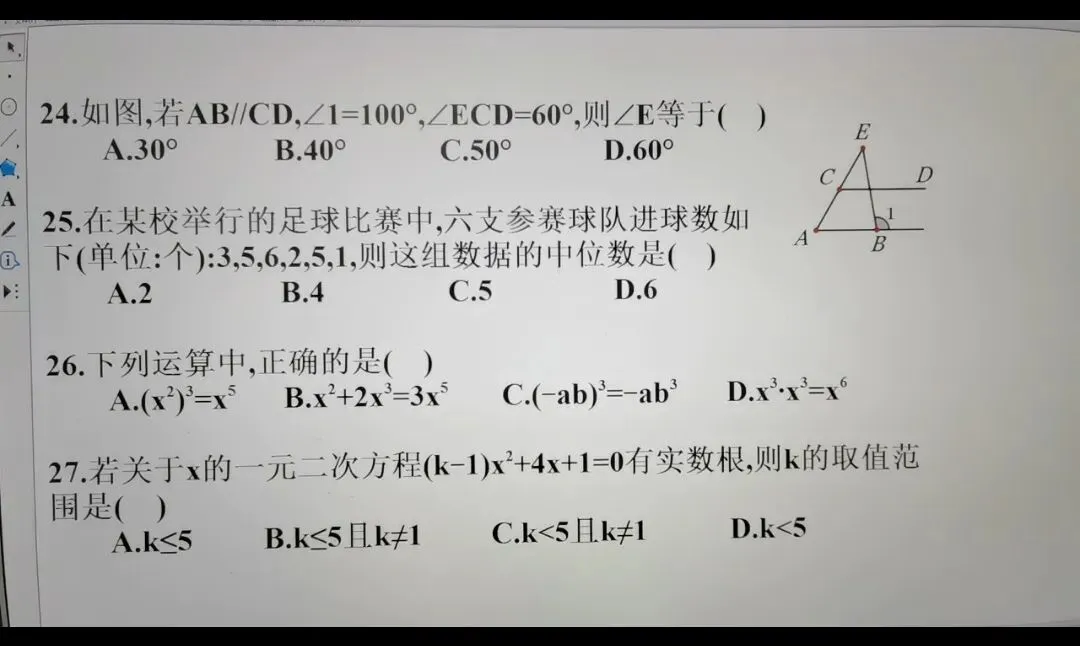 24.如图,若AB//CD,∠1=100°,∠ECD=60°,则∠E等于( )
A.30° B.40° C.50° D.60°
E
C D
1
A B
25.在某校举行的足球比赛中,六支参赛球队进球数如
下(单位:个):3,5,6,2,5,1,则这组数据的中位数是( )
A.2 B.4 C.5 D.6
26.下列运算中,正确的是( )
A.(x²)³=x⁵ B.x²+2x³=3x⁵ C.(−ab)³=−ab³ D.x³·x³=x⁶
27.若关于x的一元二次方程(k−1)x²+4x+1=0有实数根,则k的取值范
围是( )
A.k≤5 B.k≤5且k≠1 C.k<5且k≠1 D.k<5
A